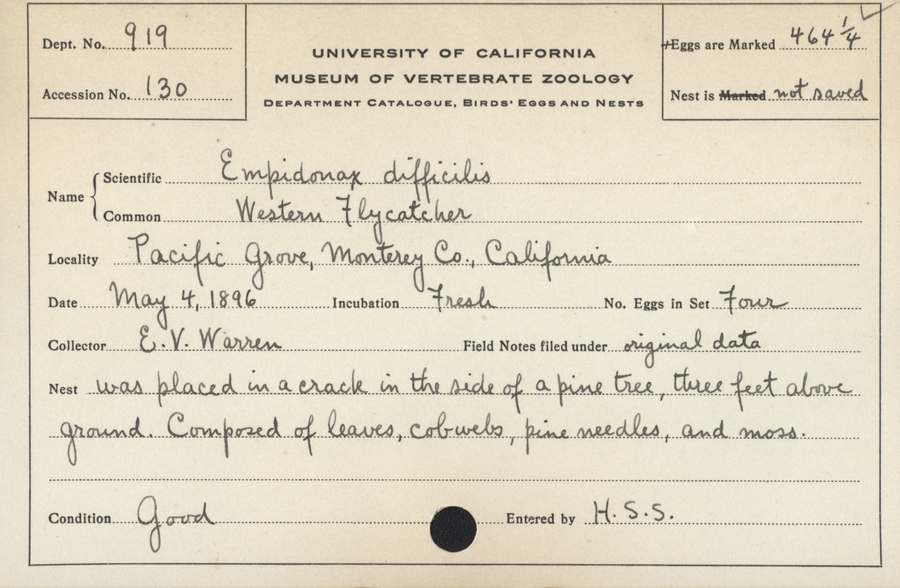 Dept. No. 919
UNIVERSITY OF CALIFORNIA
Eggs are Marked 464 1/4
MUSEUM OF VERTEBRATE ZOOLOGY
Accession No. 130
DEPARTMENT CATALOGUE, BIRDS' EGGS AND NESTS
Nest is Marked not saved
Name
Scientific Empidonax difficilis
Common Western Flycatcher
Locality Pacific Grove, Monterey Co., California
Date May 4, 1896 Incubation Fresh No. Eggs in Set Four
Collector E.V. Warren Field Notes filed under original data
Nest was placed in a crack in the side of a pine tree, three feet above
ground. Composed of leaves, cobwebs, pine needles, and moss.
Condition Good Entered by H.S.S.